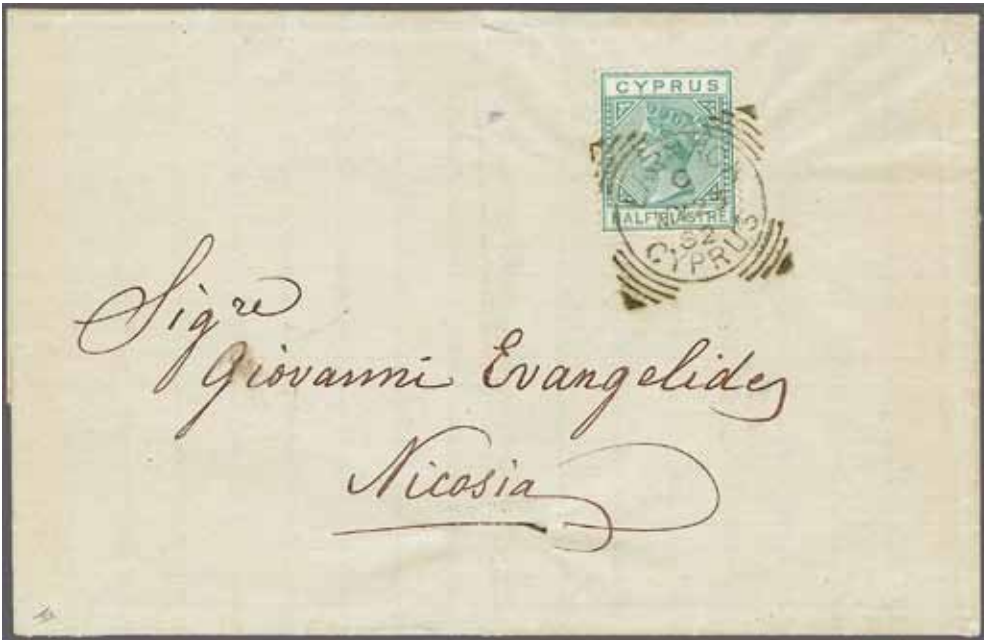 CYPRUS
HALF PIASTRE
CYPRUS
Sigre
Giovanni Evangelides
Nicosia